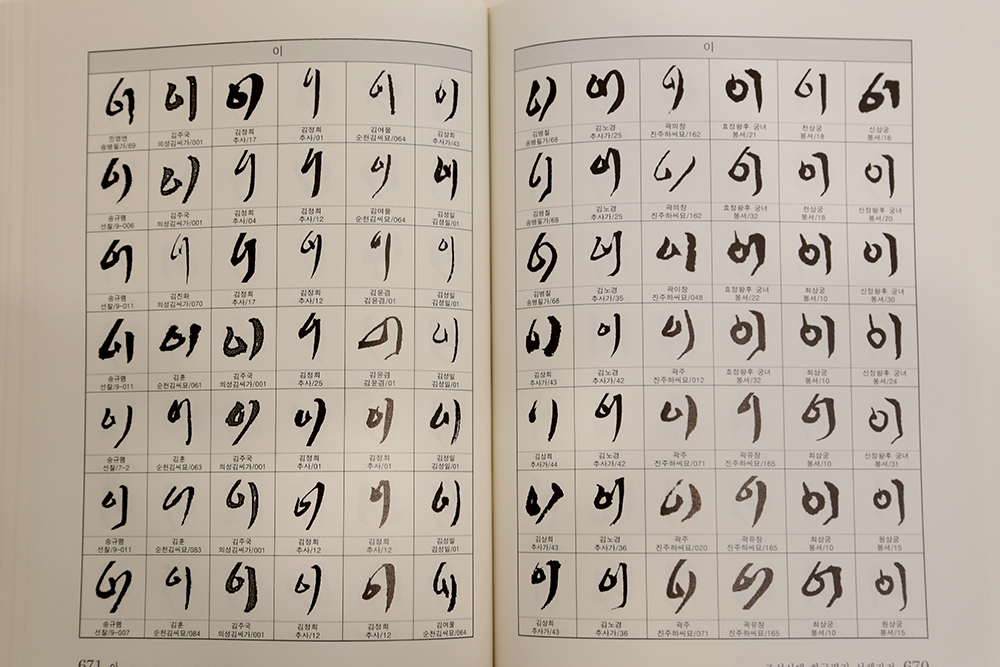 이
이 이 이 이 이 이
김주국 김정희 김정희 김여물 김상희
송병필가/69 의성김씨가/001 추사/17 추사/01 순천김씨묘/064 추사가/43
이 이 이 이 이 이
송규렴 김주국 김정희 김정희 김여물 김성일
선찰/9-006 의성김씨가/001 추사/04 추사/12 순천김씨묘/064 김성일/01
이 이 이 이 이 이
송규렴 김진화 김정희 김정희 김윤겸 김성일
선찰/9-011 의성김씨가/070 추사/17 추사/12 김윤겸/01 김성일/01
이 이 이 이 이 이
송규렴 김훈 김주국 김정희 김윤겸 김성일
선찰/9-011 순천김씨묘/061 의성김씨가/001 추사/25 김윤겸/01 김성일/01
이 이 이 이 이 이
송규렴 김훈 김주국 김정희 김정희 김성일
선찰/7-2 순천김씨묘/063 의성김씨가/001 추사/01 추사/01 김성일/01
이 이 이 이 이 이
송규렴 김훈 김주국 김정희 김정희 김성일
선찰/9-011 순천김씨묘/083 의성김씨가/001 추사/12 추사/12 김성일/01
이 이 이 이 이 이
송규렴 김훈 김주국 김정희 김정희 김여물
선찰/9-007 순천김씨묘/084 의성김씨가/001 추사/12 추사/12 순천김씨묘/064
671 이
이
이 이 이 이 이 이
김병칠 김노경 곽의창 효정왕후 궁녀 천상궁 신상궁
송병필가/68 추사가/25 진주하씨묘/162 봉셔/21 봉셔/18 봉셔/16
이 이 이 이 이 이
김병칠 김노경 곽의창 효정왕후 궁녀 천상궁 신정왕후 궁녀
송병필가/68 추사가/25 진주하씨묘/162 봉셔/32 봉셔/18 봉셔/20
이 이 이 이 이 이
김병칠 김노경 곽이창 효정왕후 궁녀 최상궁 신정왕후 궁녀
송병필가/68 추사가/35 진주하씨묘/048 봉셔/22 봉셔/10 봉셔/30
이 이 이 이 이 이
김상희 김노경 곽주 효정왕후 궁녀 최상궁 신정왕후 궁녀
추사가/43 추사가/42 진주하씨묘/012 봉셔/32 봉셔/10 봉셔/24
이 이 이 이 이 이
김상희 김노경 곽주 곽유창 최상궁 신정왕후 궁녀
추사가/44 추사가/42 진주하씨묘/071 진주하씨묘/165 봉셔/10 봉셔/31
이 이 이 이 이 이
김상희 김노경 곽주 곽유창 최상궁 원상궁
추사가/43 추사가/36 진주하씨묘/020 진주하씨묘/165 봉셔/10 봉셔/15
이 이 이 이 이 이
김상희 김노경 곽주 곽유창 최상궁 원상궁
추사가/43 추사가/36 진주하씨묘/071 진주하씨묘/165 봉셔/10 봉셔/15
조선시대 한글편지 서체자전 670